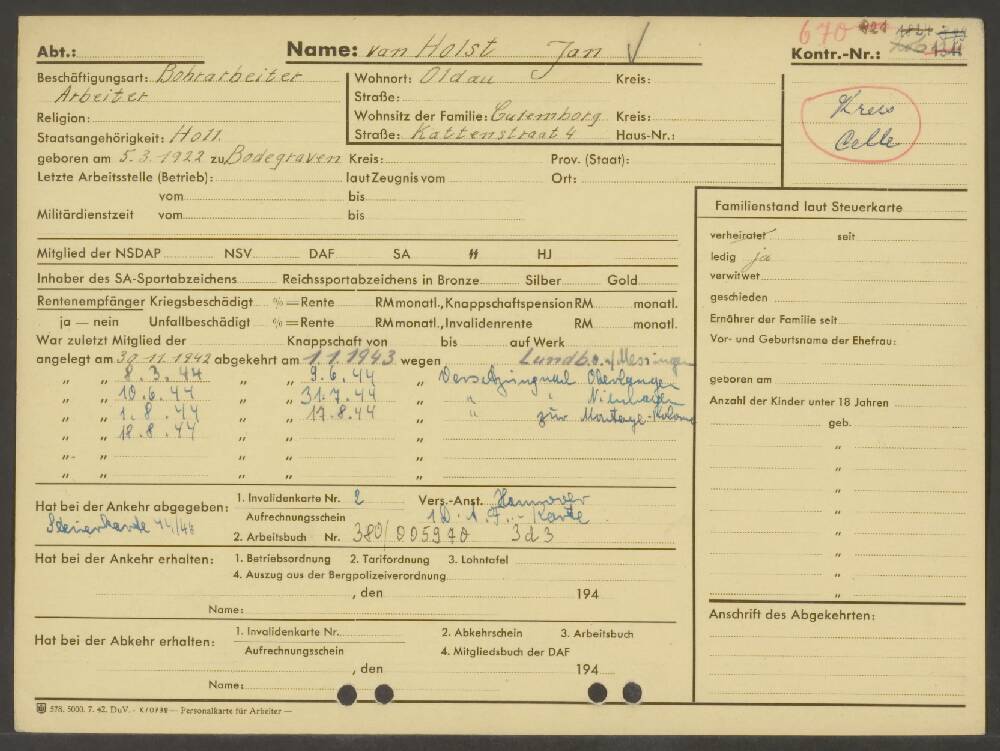 Abt.: Name: van Holst Jan
670 821
Kontr.-Nr.:
Kreis
Celle
Beschäftigungsart: Bohrarbeiter
Arbeiter
Religion:
Staatsangehörigkeit: Holl.
geboren am 5.3.1922 zu Bodegraven Kreis: Prov. (Staat):
Wohnort: Oldau Kreis:
Straße:
Wohnsitz der Familie: Culemborg Kreis:
Straße: Kattenstraat 4 Haus-Nr.:
Letzte Arbeitsstelle (Betrieb): laut Zeugnis vom Ort:
vom bis
Militärdienstzeit vom bis
Mitglied der NSDAP NSV DAF SA SS HJ
Inhaber des SA-Sportabzeichens Reichssportabzeichens in Bronze Silber Gold
Rentenempfänger Kriegsbeschädigt %=Rente RM monatl., Knappschaftspension RM monatl.
ja — nein Unfallbeschädigt %=Rente RM monatl., Invalidenrente RM monatl.
War zuletzt Mitglied der Knappschaft von bis auf Werk
angelegt am 30.11.1942 abgekehrt am 1.1.1943 wegen Lundbo. Messingen
" " 8.3.44 " " 9.6.44 " Versetzung nach Oberlangen
" " 10.6.44 " " 31.7.44 " " Nienhagen
" " 1.8.44 " " 17.8.44 " zur Montage-Kolonne
" " 18.8.44 " " "
" " " " "
" " " " "
Hat bei der Ankehr abgegeben: 1. Invalidenkarte Nr. 2 Vers.-Anst. Hannover
Steuerkarte 44/46 Aufrechnungsschein
2. Arbeitsbuch Nr. 380/005970 3d3
Hat bei der Ankehr erhalten: 1. Betriebsordnung 2. Tarifordnung 3. Lohntafel
4. Auszug aus der Bergpolizeiverordnung
, den 194
Name:
Hat bei der Abkehr erhalten: 1. Invalidenkarte Nr. 2. Abkehrschein 3. Arbeitsbuch
Aufrechnungsschein 4. Mitgliedsbuch der DAF
, den 194
Name:
578. 5000. 7. 42. DuV. - K/0798 — Personalkarte für Arbeiter —
Familienstand laut Steuerkarte
verheiratet seit
ledig ja
verwitwet
geschieden
Ernährer der Familie seit
Vor- und Geburtsname der Ehefrau:
geboren am
Anzahl der Kinder unter 18 Jahren
geb.
"
"
"
"
"
"
"
Anschrift des Abgekehrten: